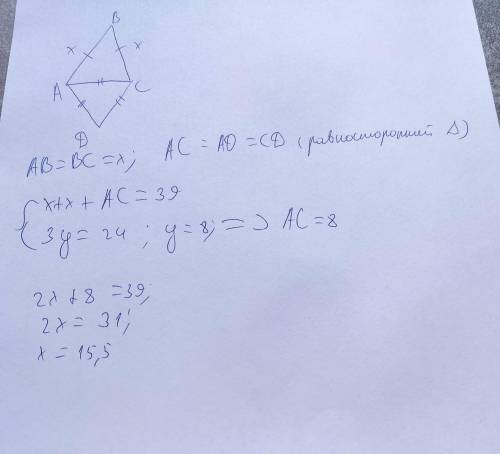 B
x x
A C
D
AB = BC = x; AC = AD = CD (равносторонний Δ)
x+x + AC = 39
3y = 24 ; y = 8; => AC = 8
2x + 8 = 39;
2x = 31;
x = 15,5